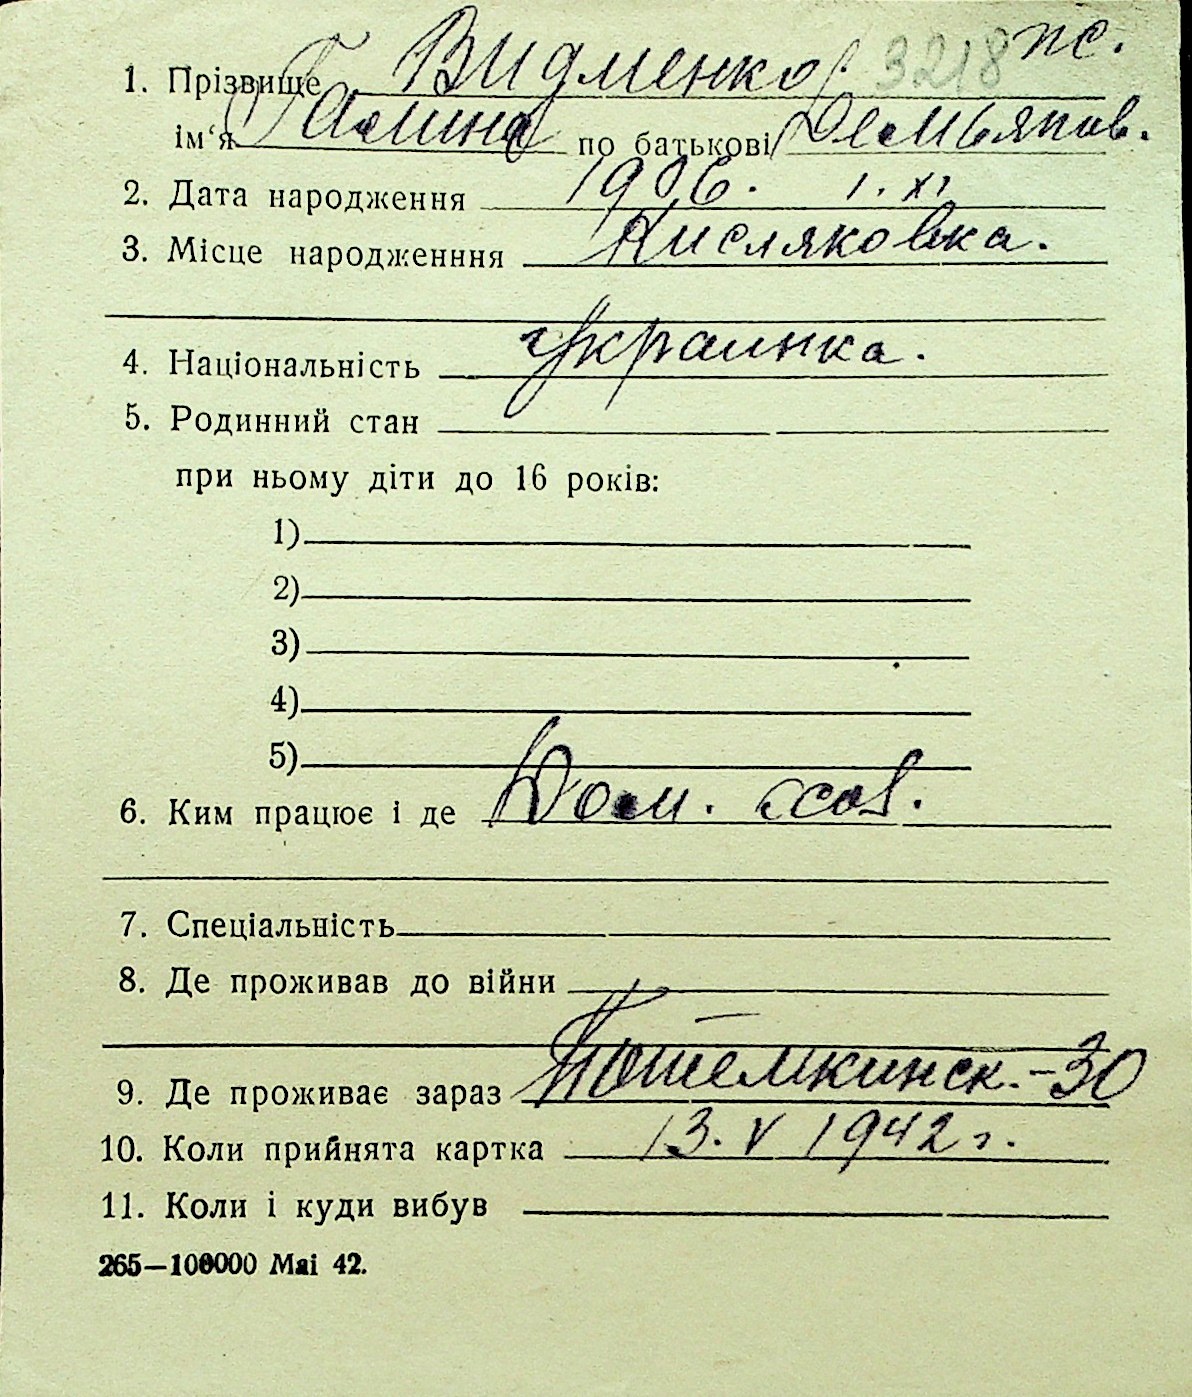 1. Прізвище Видменко 3218 пс.
ім‘я Галина по батькові Демьянов.
2. Дата народження 1906. 1. XI
3. Місце народженння Кисляковка.
4. Національність украинка.
5. Родинний стан
при ньому діти до 16 років:
1)
2)
3)
4)
5)
6. Ким працює і де Дом. хоз.
7. Спеціальність
8. Де проживав до війни
9. Де проживає зараз Потемкинск.-30
10. Коли прийнята картка 13. V 1942 г.
11. Коли і куди вибув
265—100000 Маі 42.